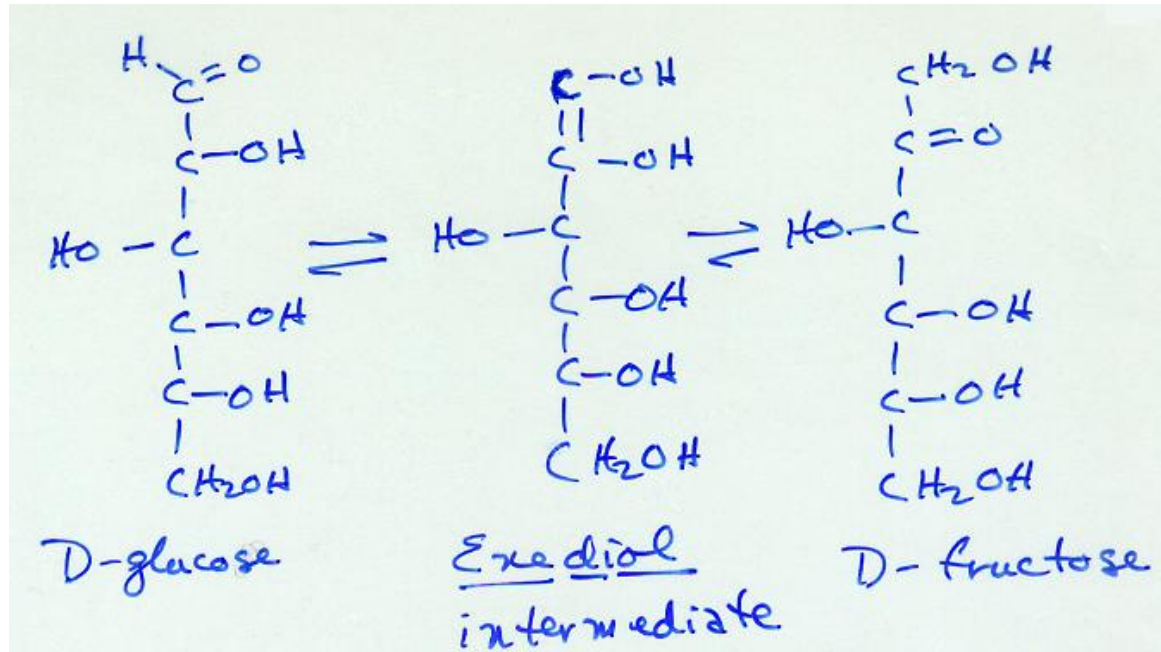 H C=O
C-OH
HO-C
C-OH
C-OH
CH2OH
D-glucose
C-OH
C-OH
HO-C
C-OH
C-OH
CH2OH
Enediol
intermediate
CH2OH
C=O
HO-C
C-OH
C-OH
CH2OH
D-fructose